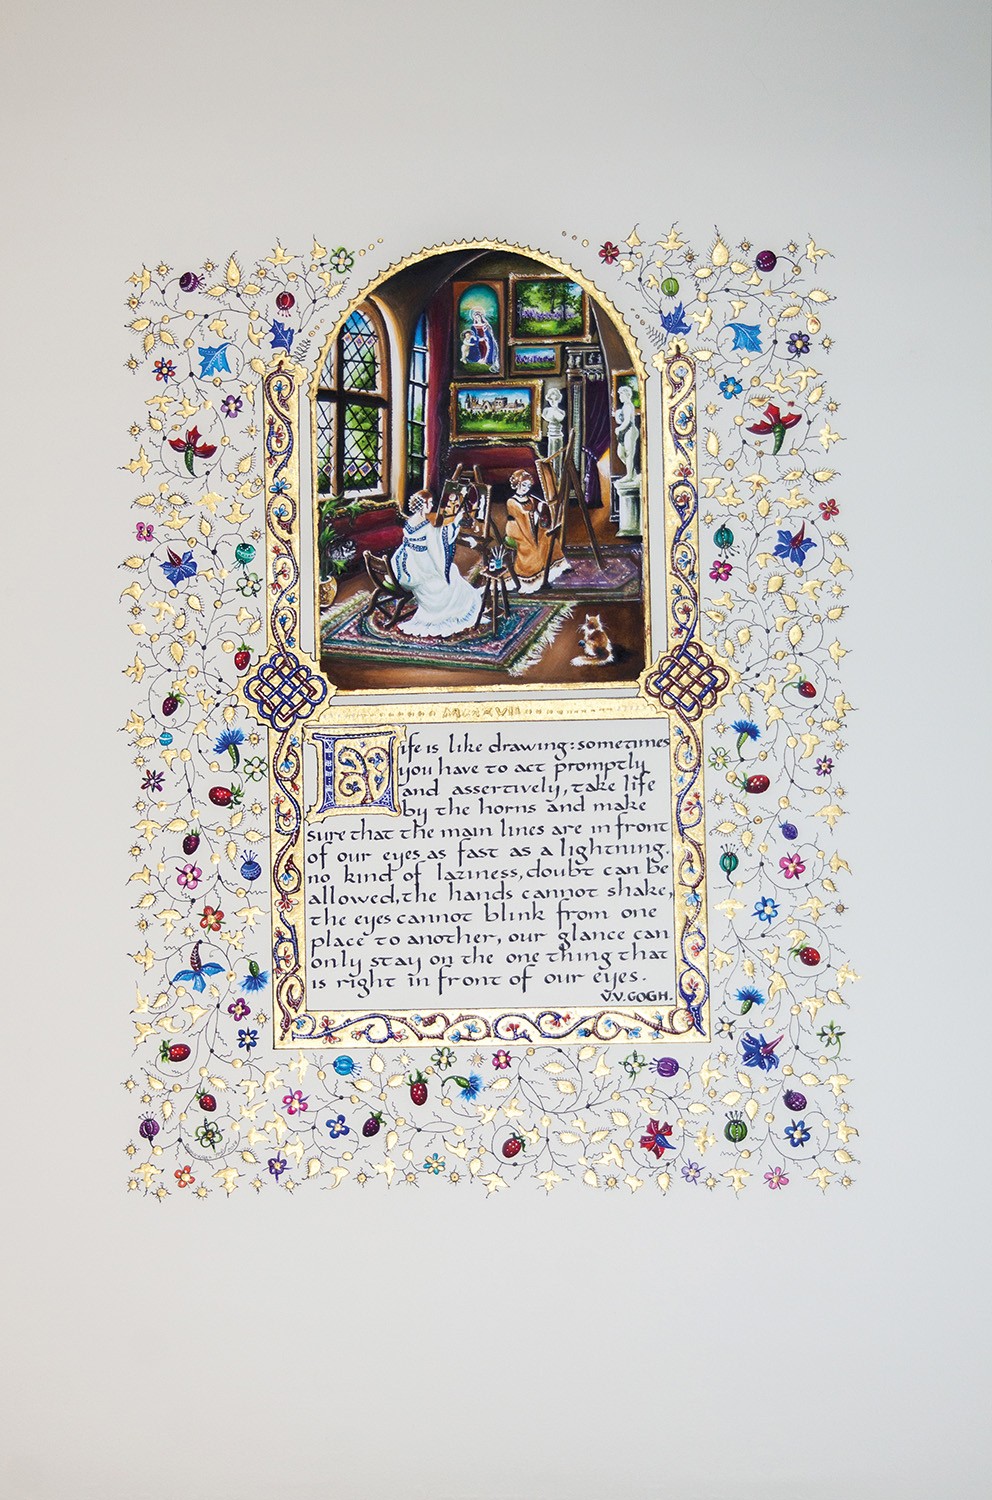 MMXVII
Life is like drawing: sometimes
you have to act promptly
and assertively, take life
by the horns and make
sure that the main lines are in front
of our eyes as fast as a lightning.
no kind of laziness, doubt can be
allowed, the hands cannot shake,
the eyes cannot blink from one
place to another, our glance can
only stay on the one thing that
is right in front of our eyes.
V.V.GOGH.